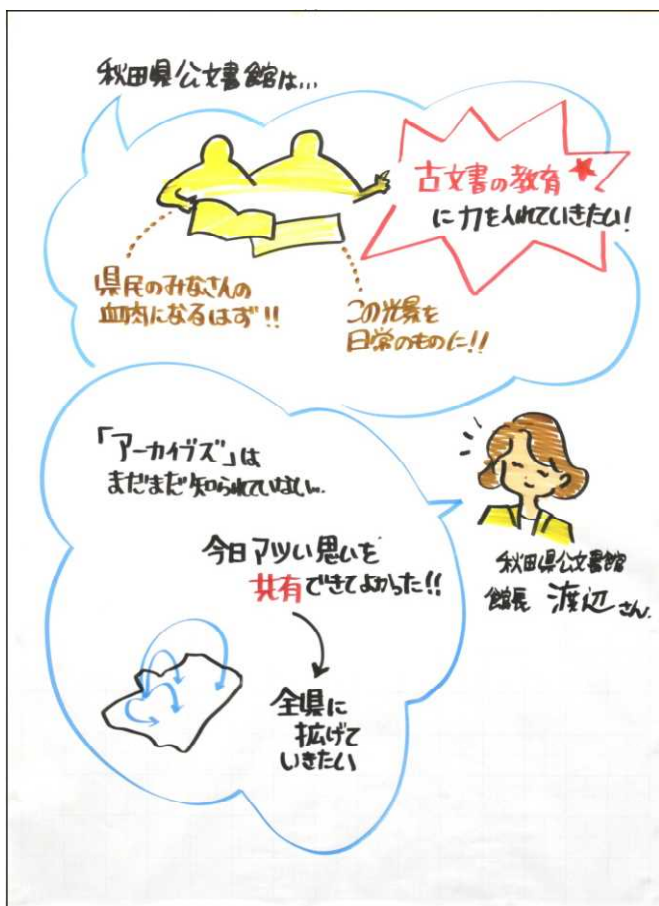 秋田県公文書館は...
古文書の教育
に力を入れていきたい!
県民のみなさんの
血肉になるはず!!
この光景を
日常のものに!!
「アーカイブズ」は
まだまだ知られていない...
今日アツい思いを
共有できてよかった!!
全県に
拡げて
いきたい
秋田県公文書館
館長 渡辺さん.